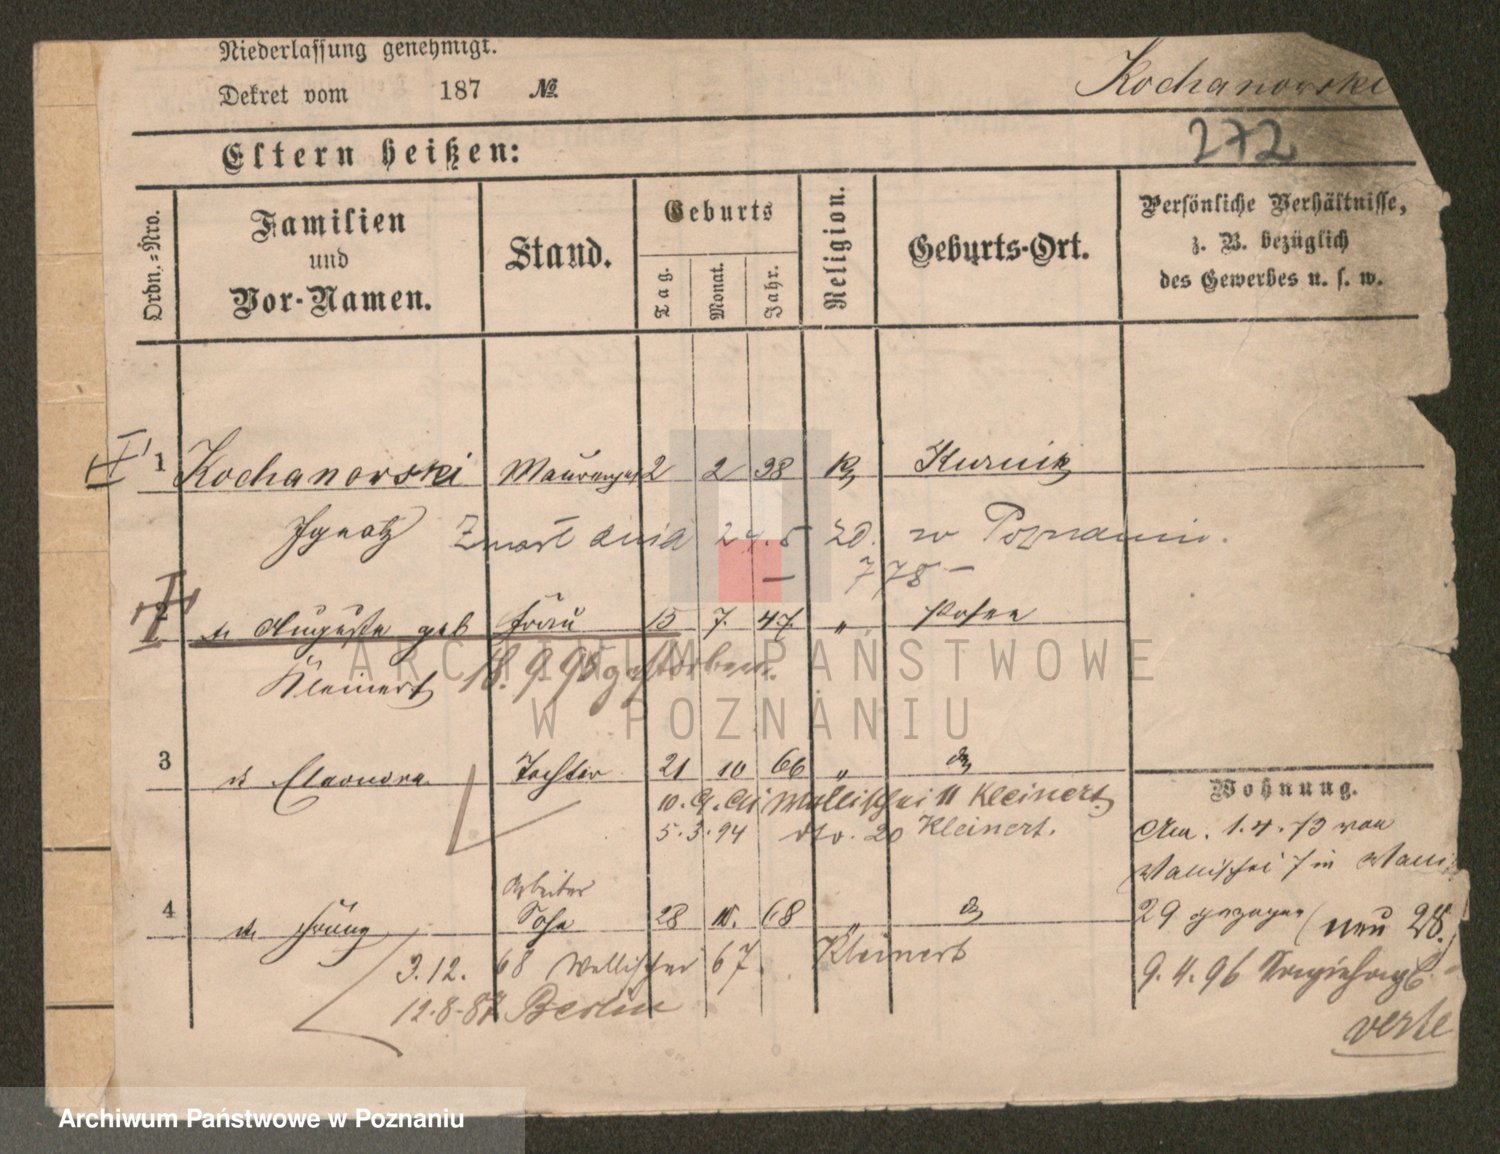 Niederlassung genehmigt.
Dekret vom 187 №.
Kochanowski
272
Eltern heißen:
Ordn.-Nro.
Familien
und
Vor-Namen.
Stand.
Geburts
Tag.
Monat.
Jahr.
Religion.
Geburts-Ort.
Persönliche Verhältnisse,
z. B. bezüglich
des Gewerbes u. s. w.
1 Kochanowski 2 2 38 Kurnik
Ignatz Zmarł dnia 24.5 20. w Poznaniu.
778
2 Auguste geb Frau 15 7. 47 " Posen
Kleinert 18. 9 95 gestorben.
ARCHIWUM PAŃSTWOWE
W POZNANIU
3 Eleonora Tochter 21 10 66 "
Wallischei 11 Kleinert
5.3.94 dto. 20 Kleinert.
Wohnung.
1.4.73 von
Wallischei 7 in
Arbeiter
4 Sohn 28 68 "
29 gezogen (neu 28.)
3.12. 68 Wallischei 67. Kleinert
9.4.96
12.8.87 Berlin
verte
Archiwum Państwowe w Poznaniu